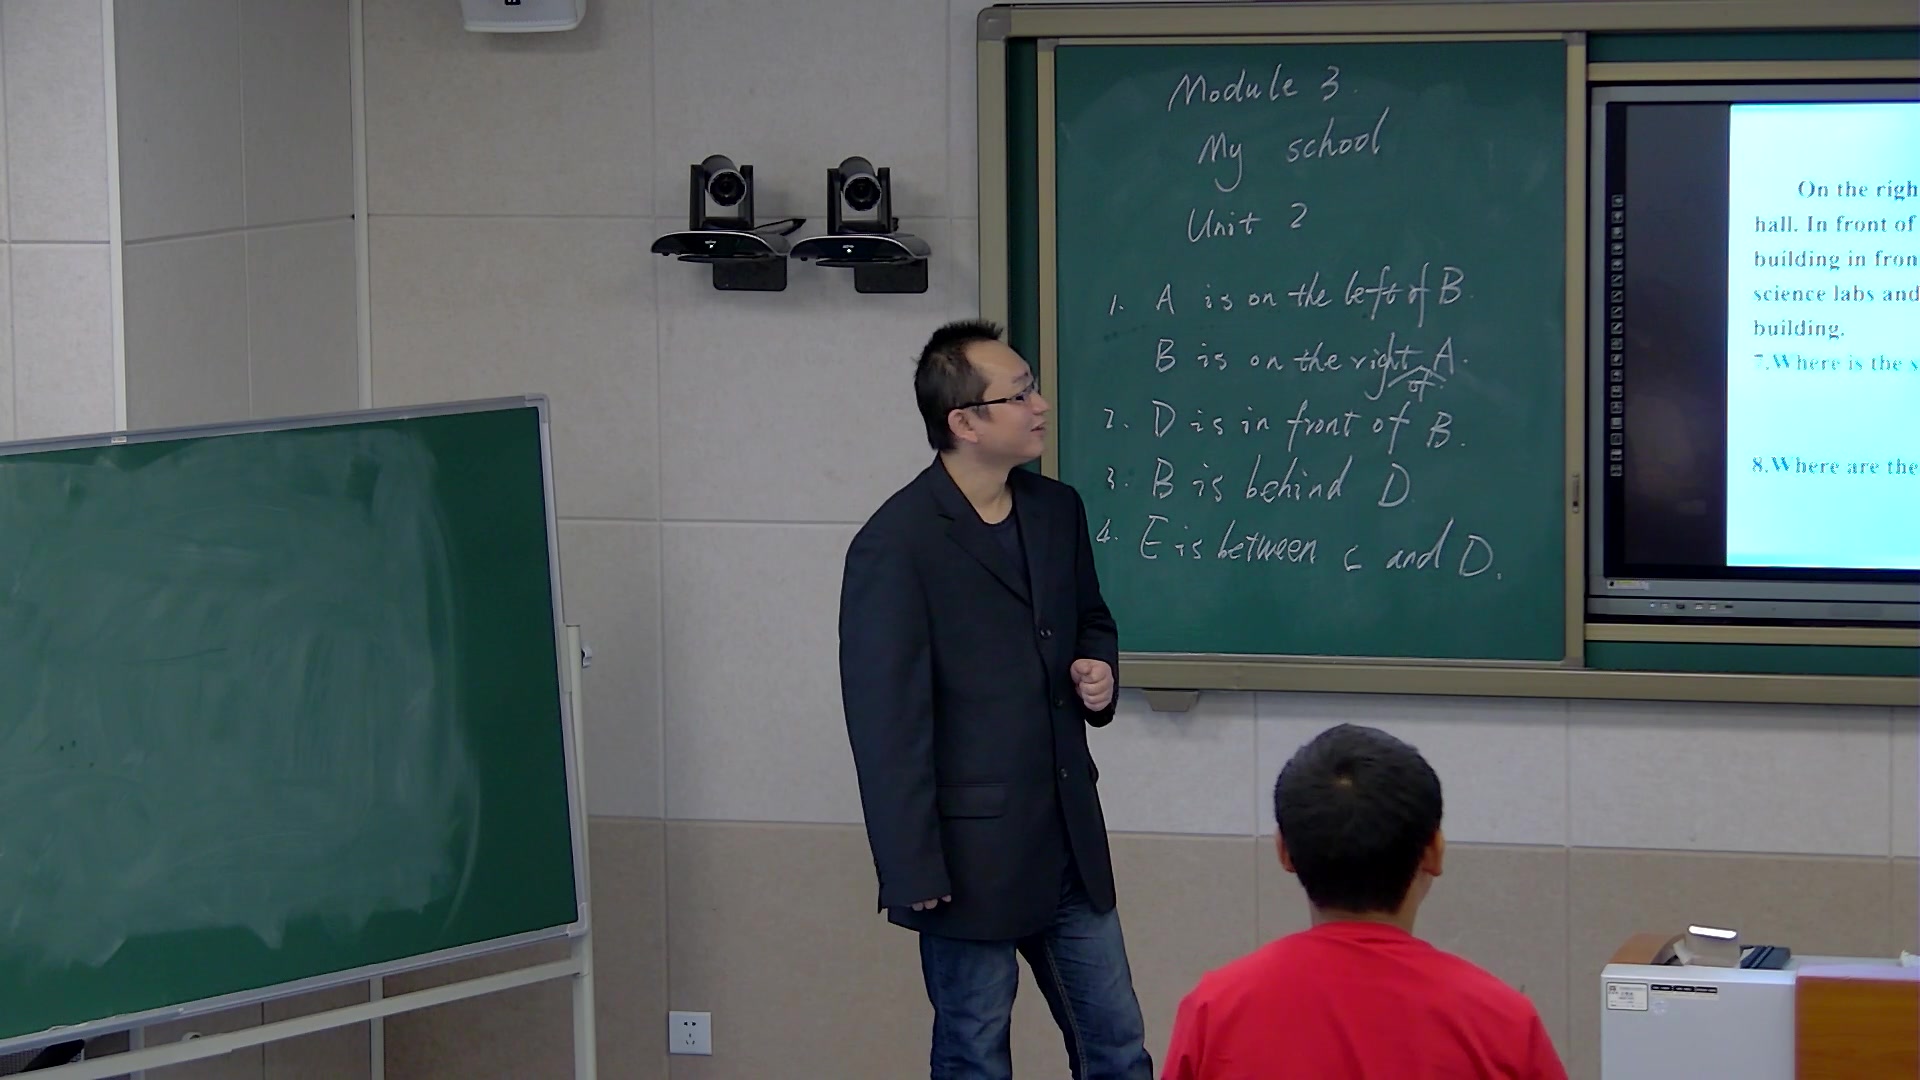 Module 3.
My school
Unit 2
1. A is on the left of B.
B is on the right of A.
2. D is in front of B.
3. B is behind D.
4. E is between C and D.
On the righ
hall. In front of
building in fron
science labs and
building.
7.Where is the s
8.Where are the